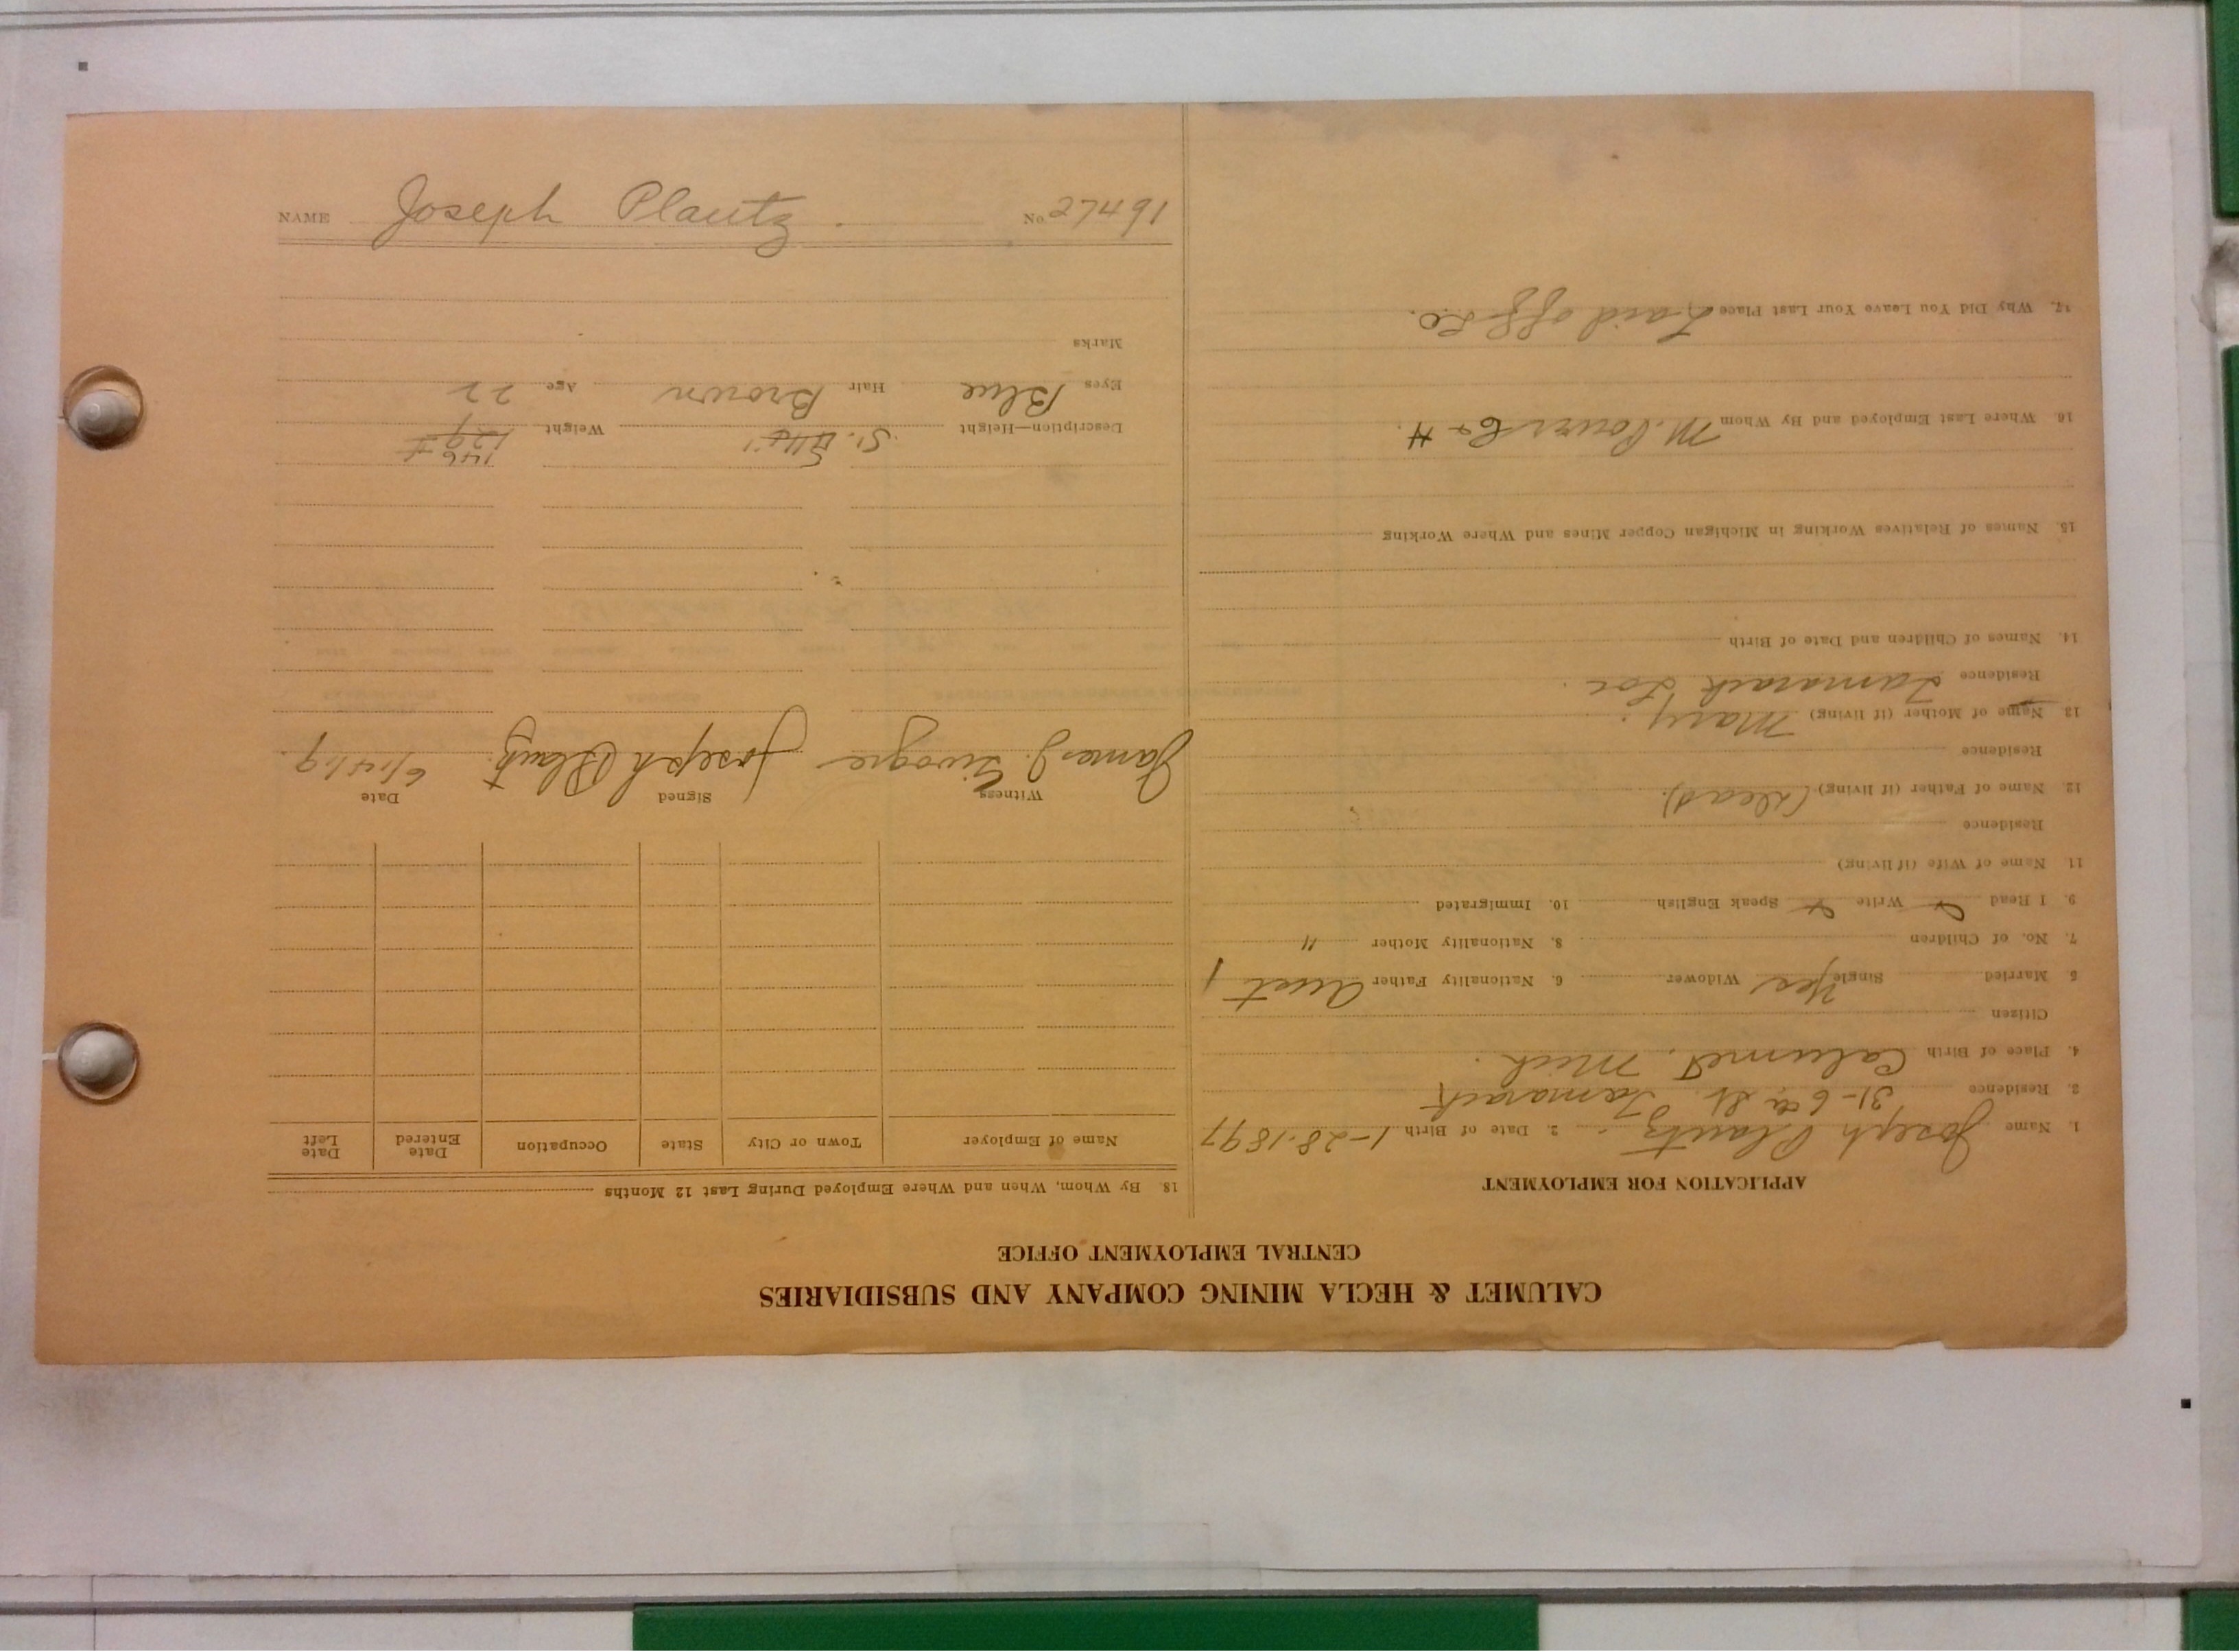 CALUMET & HECLA MINING COMPANY AND SUBSIDIARIES
CENTRAL EMPLOYMENT OFFICE
APPLICATION FOR EMPLOYMENT
1. Name Joseph Plautz. 2. Date of Birth 1-28-1897
2. Residence 31-6th St Tamarack
4. Place of Birth Calumet, Mich.
Citizen
5. Married Single Yes Widower 6. Nationality Father Aust
7. No. of Children 8. Nationality Mother "
9. I Read Write Speak English 10. Immigrated
11. Name of Wife (if living)
Residence
12. Name of Father (if living) (dead).
Residence
13 Name of Mother (if living) Mary.
Residence Tamarack Loc.
14. Names of Children and Date of Birth
15. Names of Relatives Working in Michigan Copper Mines and Where Working
16. Where Last Employed and By Whom C & H.
17. Why Did You Leave Your Last Place Laid off
18. By Whom, When and Where Employed During Last 12 Months
Name of Employer Town or City State Occupation Date Entered Date Left
Witness Signed Date
James J. Joseph Plautz 6/14/19.
Description—Height 5'. Weight 146
Eyes Blue Hair Brown Age 22
Marks
NAME Joseph Plautz. No. 27491